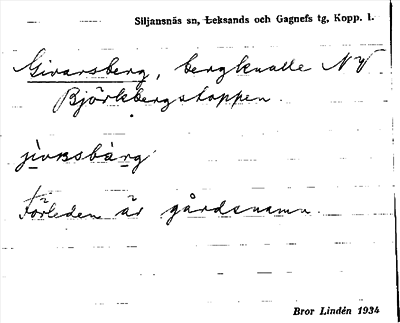 Siljansnäs sn, Leksands och Gagnefs tg, Kopp. l.
Givarsberg, bergknalle NV
Björkbergstoppen.
jivarsbàrg
Förleden är gårdsnamn.
Bror Lindén 1934